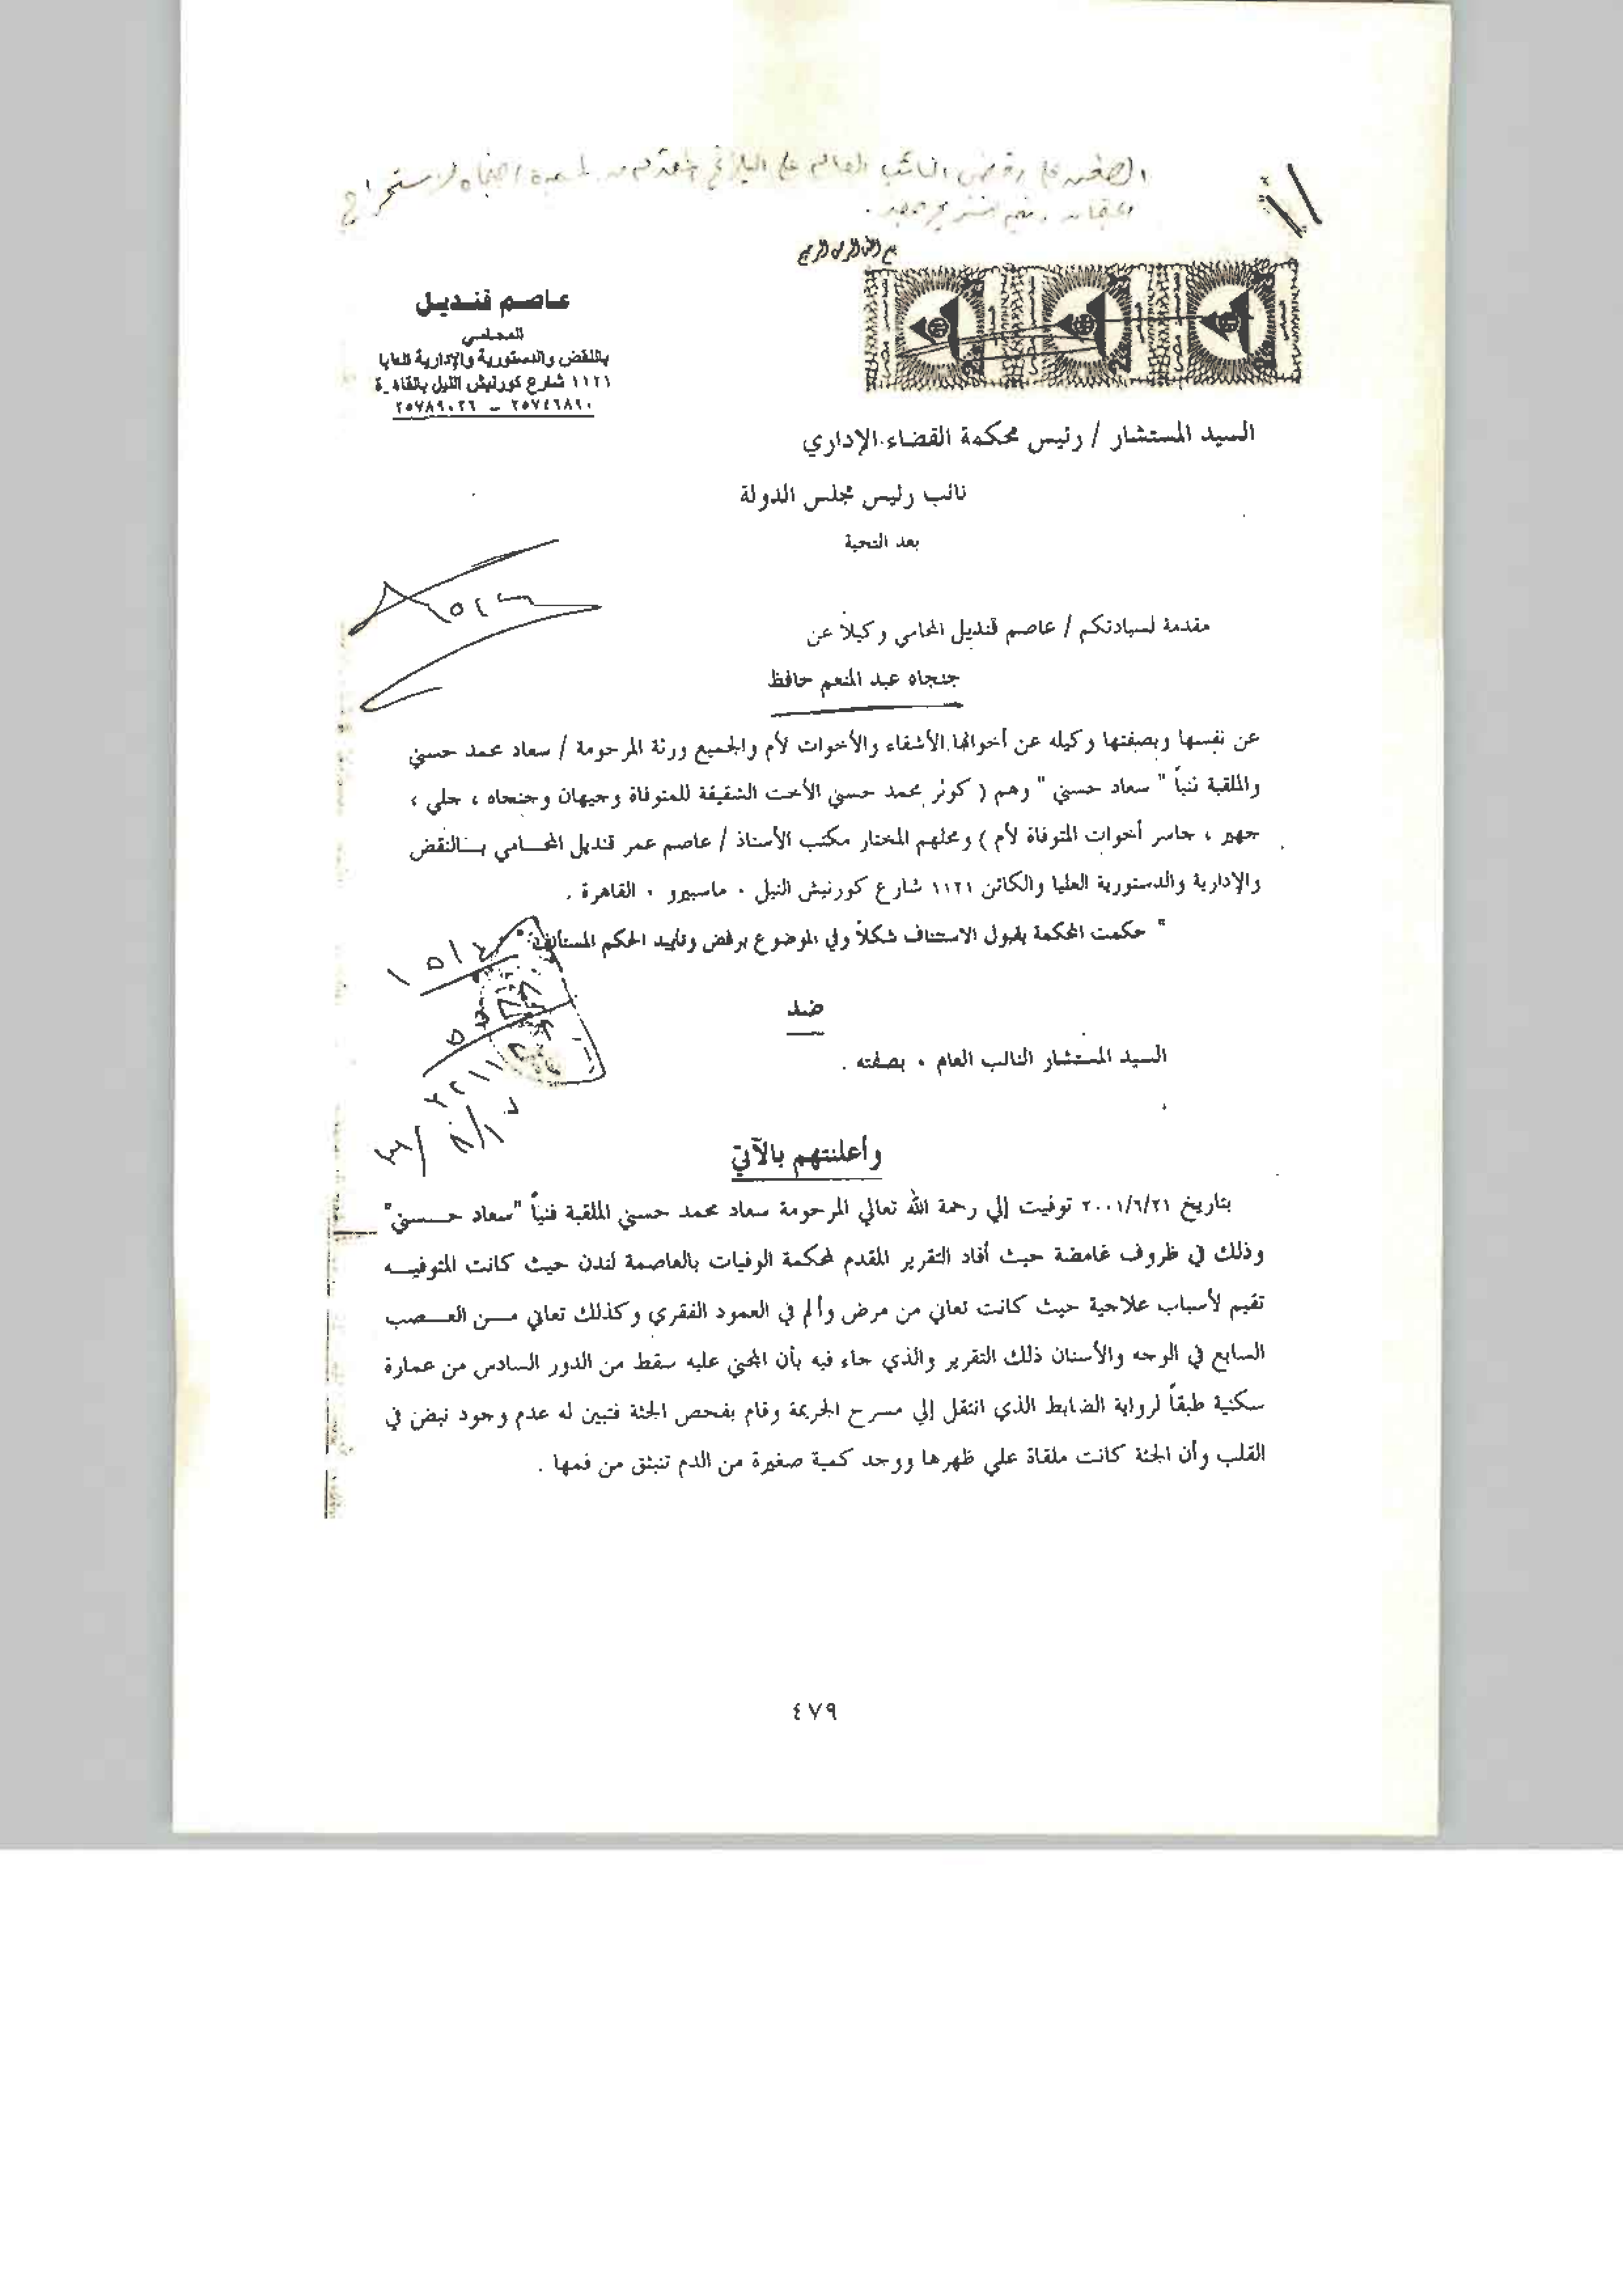 بسم الله الرحمن الرحيم
عاصم قنديل
المحامي
بالنقض والدستورية والإدارية العليا
١١٢١ شارع كورنيش النيل بالقاهرة
٢٥٧٤٦٨٩٠ – ٢٥٧٨٩٠٢٦
السيد المستشار / رئيس محكمة القضاء الإداري
نائب رئيس مجلس الدولة
بعد التحية
مقدمة لسيادتكم / عاصم قنديل المحامي وكيلاً عن
جنجاه عبد المنعم حافظ
عن نفسها وبصفتها وكيله عن أخواتها الأشقاء والأخوات لأم والجميع ورثة المرحومة / سعاد محمد حسني
والملقبة فنياً " سعاد حسني " وهم ( كوثر محمد حسني الأخت الشقيقة للمتوفاة وجيهان وجنجاه ، جلي ،
جهير ، جاسر أخوات المتوفاة لأم ) ومحلهم المختار مكتب الأستاذ / عاصم عمر قنديل المحـــامي بـــالنقض
والإدارية والدستورية العليا والكائن ١١٢١ شارع كورنيش النيل . ماسبيرو . القاهرة .
" حكمت المحكمة بقبول الاستئناف شكلاً وفي الموضوع برفض وتأييد الحكم المستأنف "
ضد
السيد المستشار النائب العام . بصفته .
وأعلنتهم بالآتي
بتاريخ ٢٠٠١/٦/٢١ توفيت إلي رحمة الله تعالي المرحومة سعاد محمد حسني الملقبة فنياً "سعاد حـــسني"
وذلك في ظروف غامضة حيث أفاد التقرير المقدم لمحكمة الوفيات بالعاصمة لندن حيث كانت المتوفيـــه
تقيم لأسباب علاجية حيث كانت تعاني من مرض وألم في العمود الفقري وكذلك تعاني مـــن العـــصب
السابع في الوجه والأسنان ذلك التقرير والذي جاء فيه بأن المجني عليه سقط من الدور السادس من عمارة
سكنية طبقاً لرواية الضابط الذي انتقل إلي مسرح الجريمة وقام بفحص الجثة فتبين له عدم وجود نبض في
القلب وأن الجثة كانت ملقاة علي ظهرها ووجد كمية صغيرة من الدم تنبثق من فمها .
٤٧٩